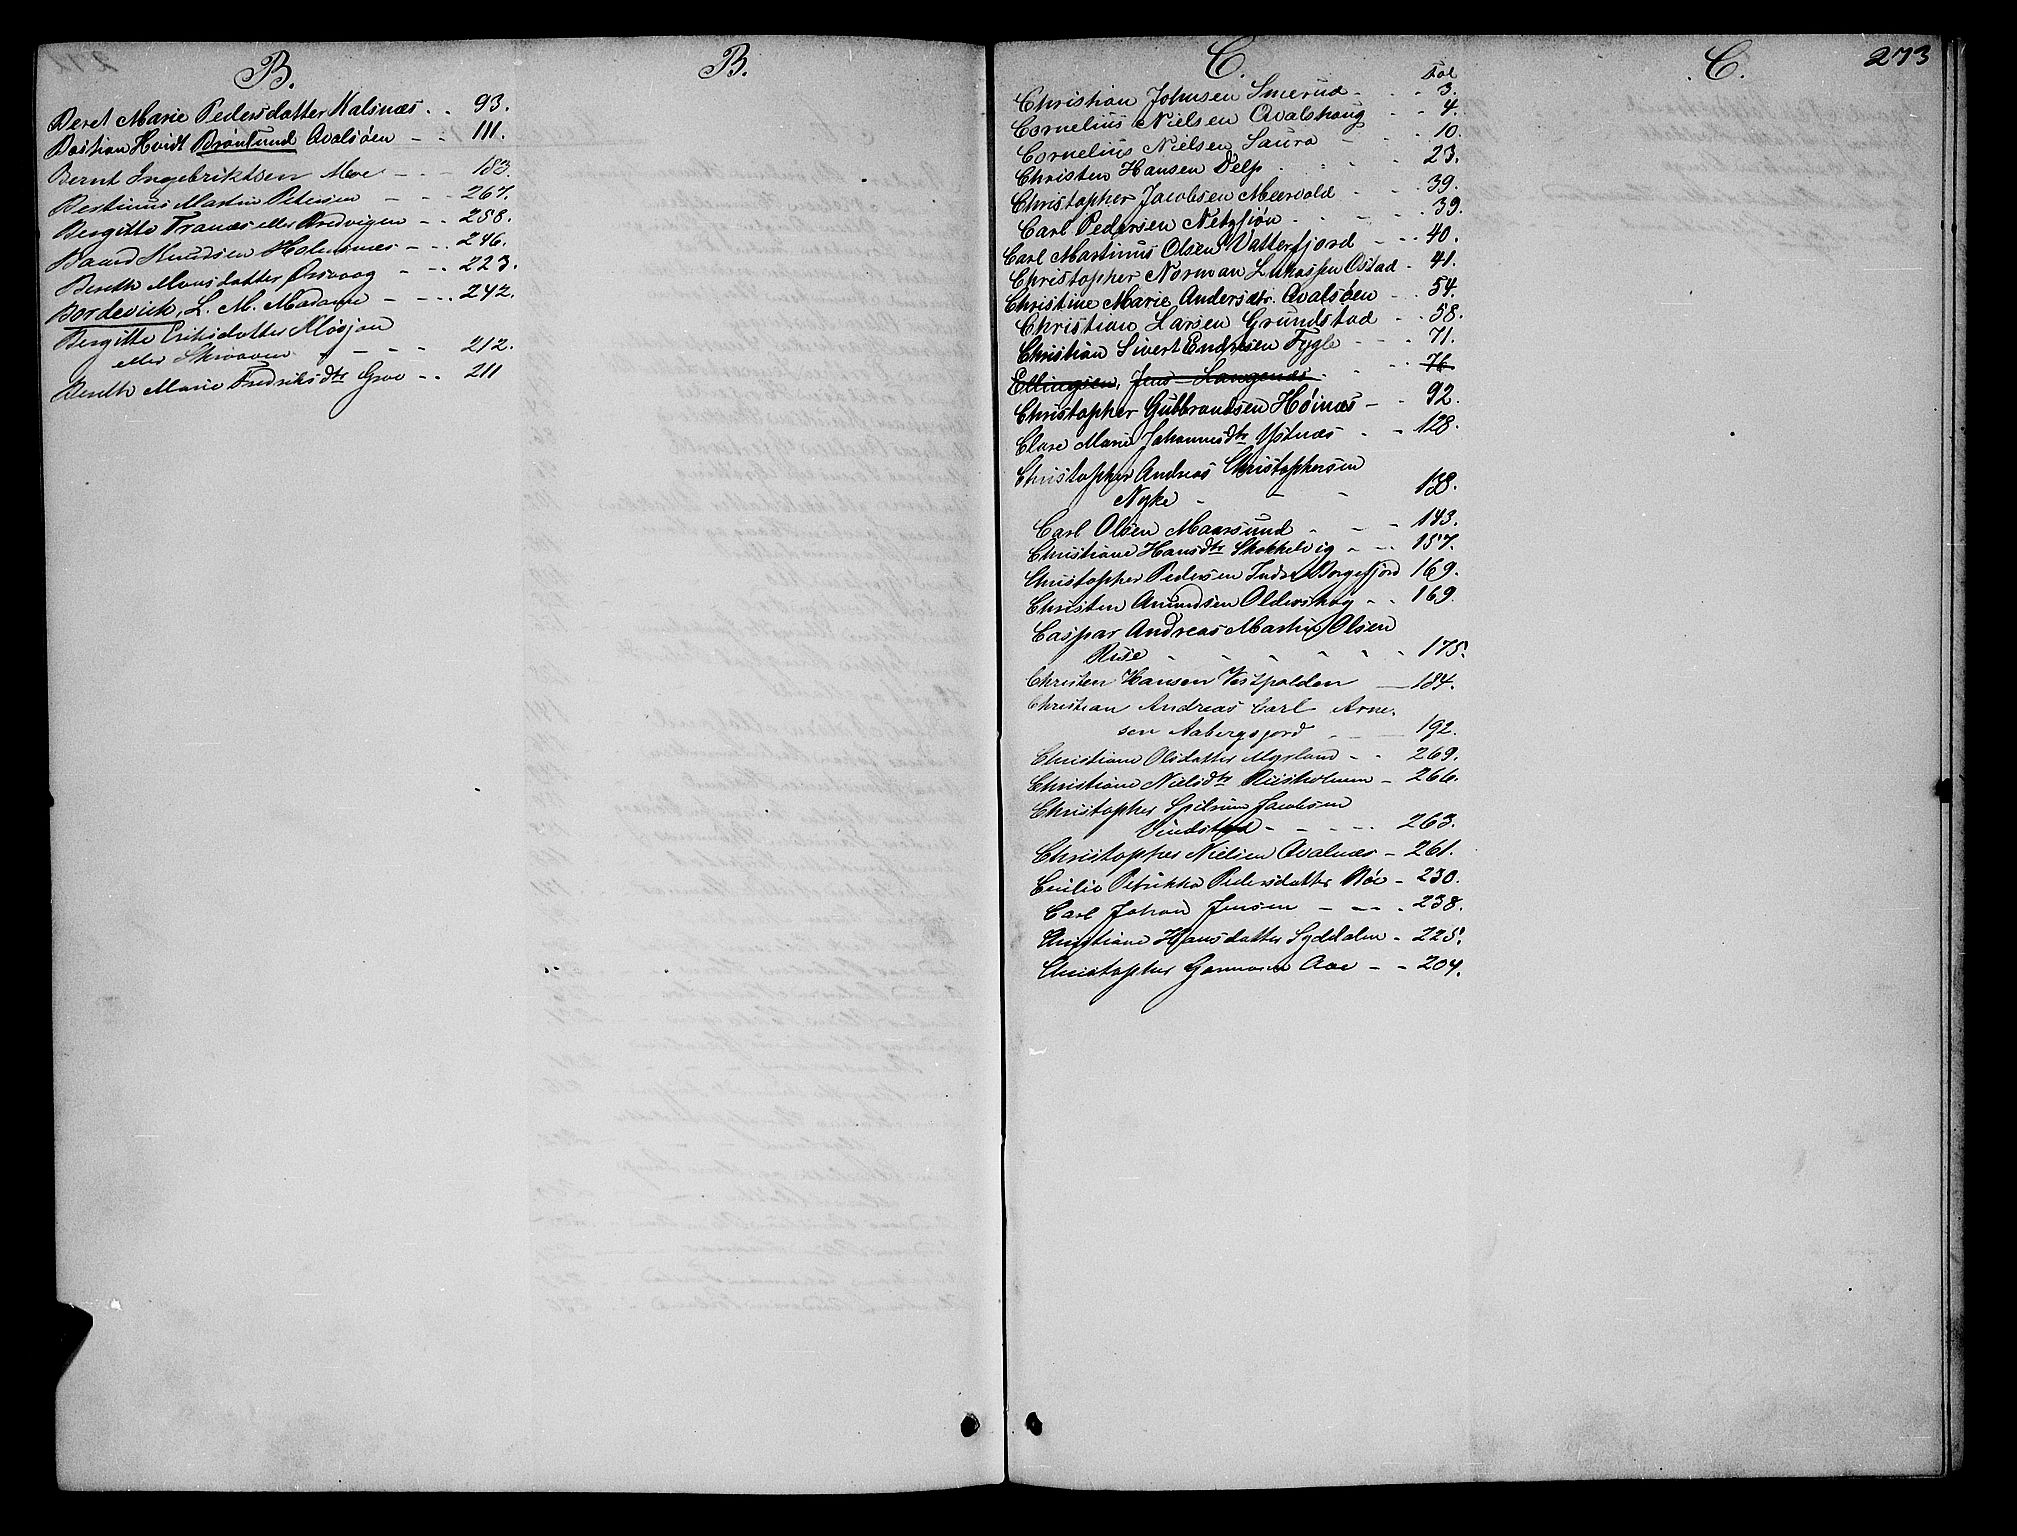 B.
B.
Beret Marie Pedersdatter Kalsnæs . . 93.
Bastian Hvidt Brønlund Qvalsøen - - 111.
Bernt Ingebriktsen Moe - - - 183.
Bertinus Martin Petersen - - - 267.
Bergitte Tranæs eller Bredvigen - - 258.
Baard Knudsen Holmenæs - - - 246.
Bereth Monsdatter Ørsvaag - - - 223.
Bordevick, L. M. Madame - - - 242.
Bergitte Eriksdatter Kløsjan
eller Skraaven - - - 212.
Bereth Marie Fredriksdtr Groe - - 211
C.
C.
273
Fol
Christian Johnsen Smerud - - - 3.
Cornelius Nielsen Qvalshaug - - 4.
Cornelius Nielsen Saura - - 10.
Christen Hansen Delp - - - 23.
Christopher Jacobsen Meervold - - 39.
Carl Pedersen Netzjøn - - - 39.
Carl Martinus Olsen Vatterfjord - - - 40.
Christopher Norman Lukassen Ostad - 41.
Christine Marie Andersdtr. Qvalsøen - - 54.
Christian Larsen Grundstad - - 58.
Christian Sivert Endresen Fygle - - - 71.
Ellingsen, Jens Langenæs - - - 76
Christopher Gulbrandsen Høinæs - - 92.
Clare Marie Johannesdtr Ystnæs - - 128.
Christopher Andreas Christophersen
Nyke - - - 138.
Carl Olsen Maarsund - - - 143.
Christiane Hansdtr Skokkelvig - - - 157.
Christopher Pedersen Indre Borgefjord 169.
Christen Amundsen Olderskog - - 169.
Caspar Andreas Martin Olsen
Rise - - - - - - 175.
Christen Hansen Vestpolden - 184.
Christian Andreas Carl Arne-
sen Aabergsjord - - 192.
Christiane Olsdatter Myrland - - 269.
Christiane Nielsdtr Riisholmen - 266.
Christopher Spilrum Jacobsen
Vindstad - - - - 263.
Christopher Nielsen Qvalnæs - 261.
Cecilie Petrikka Pedersdatter Bøe - 230.
Carl Johan Jensen - - - - 238.
Christiane Hansdatter Syddalen - 225.
Christopher Aae - - 204.